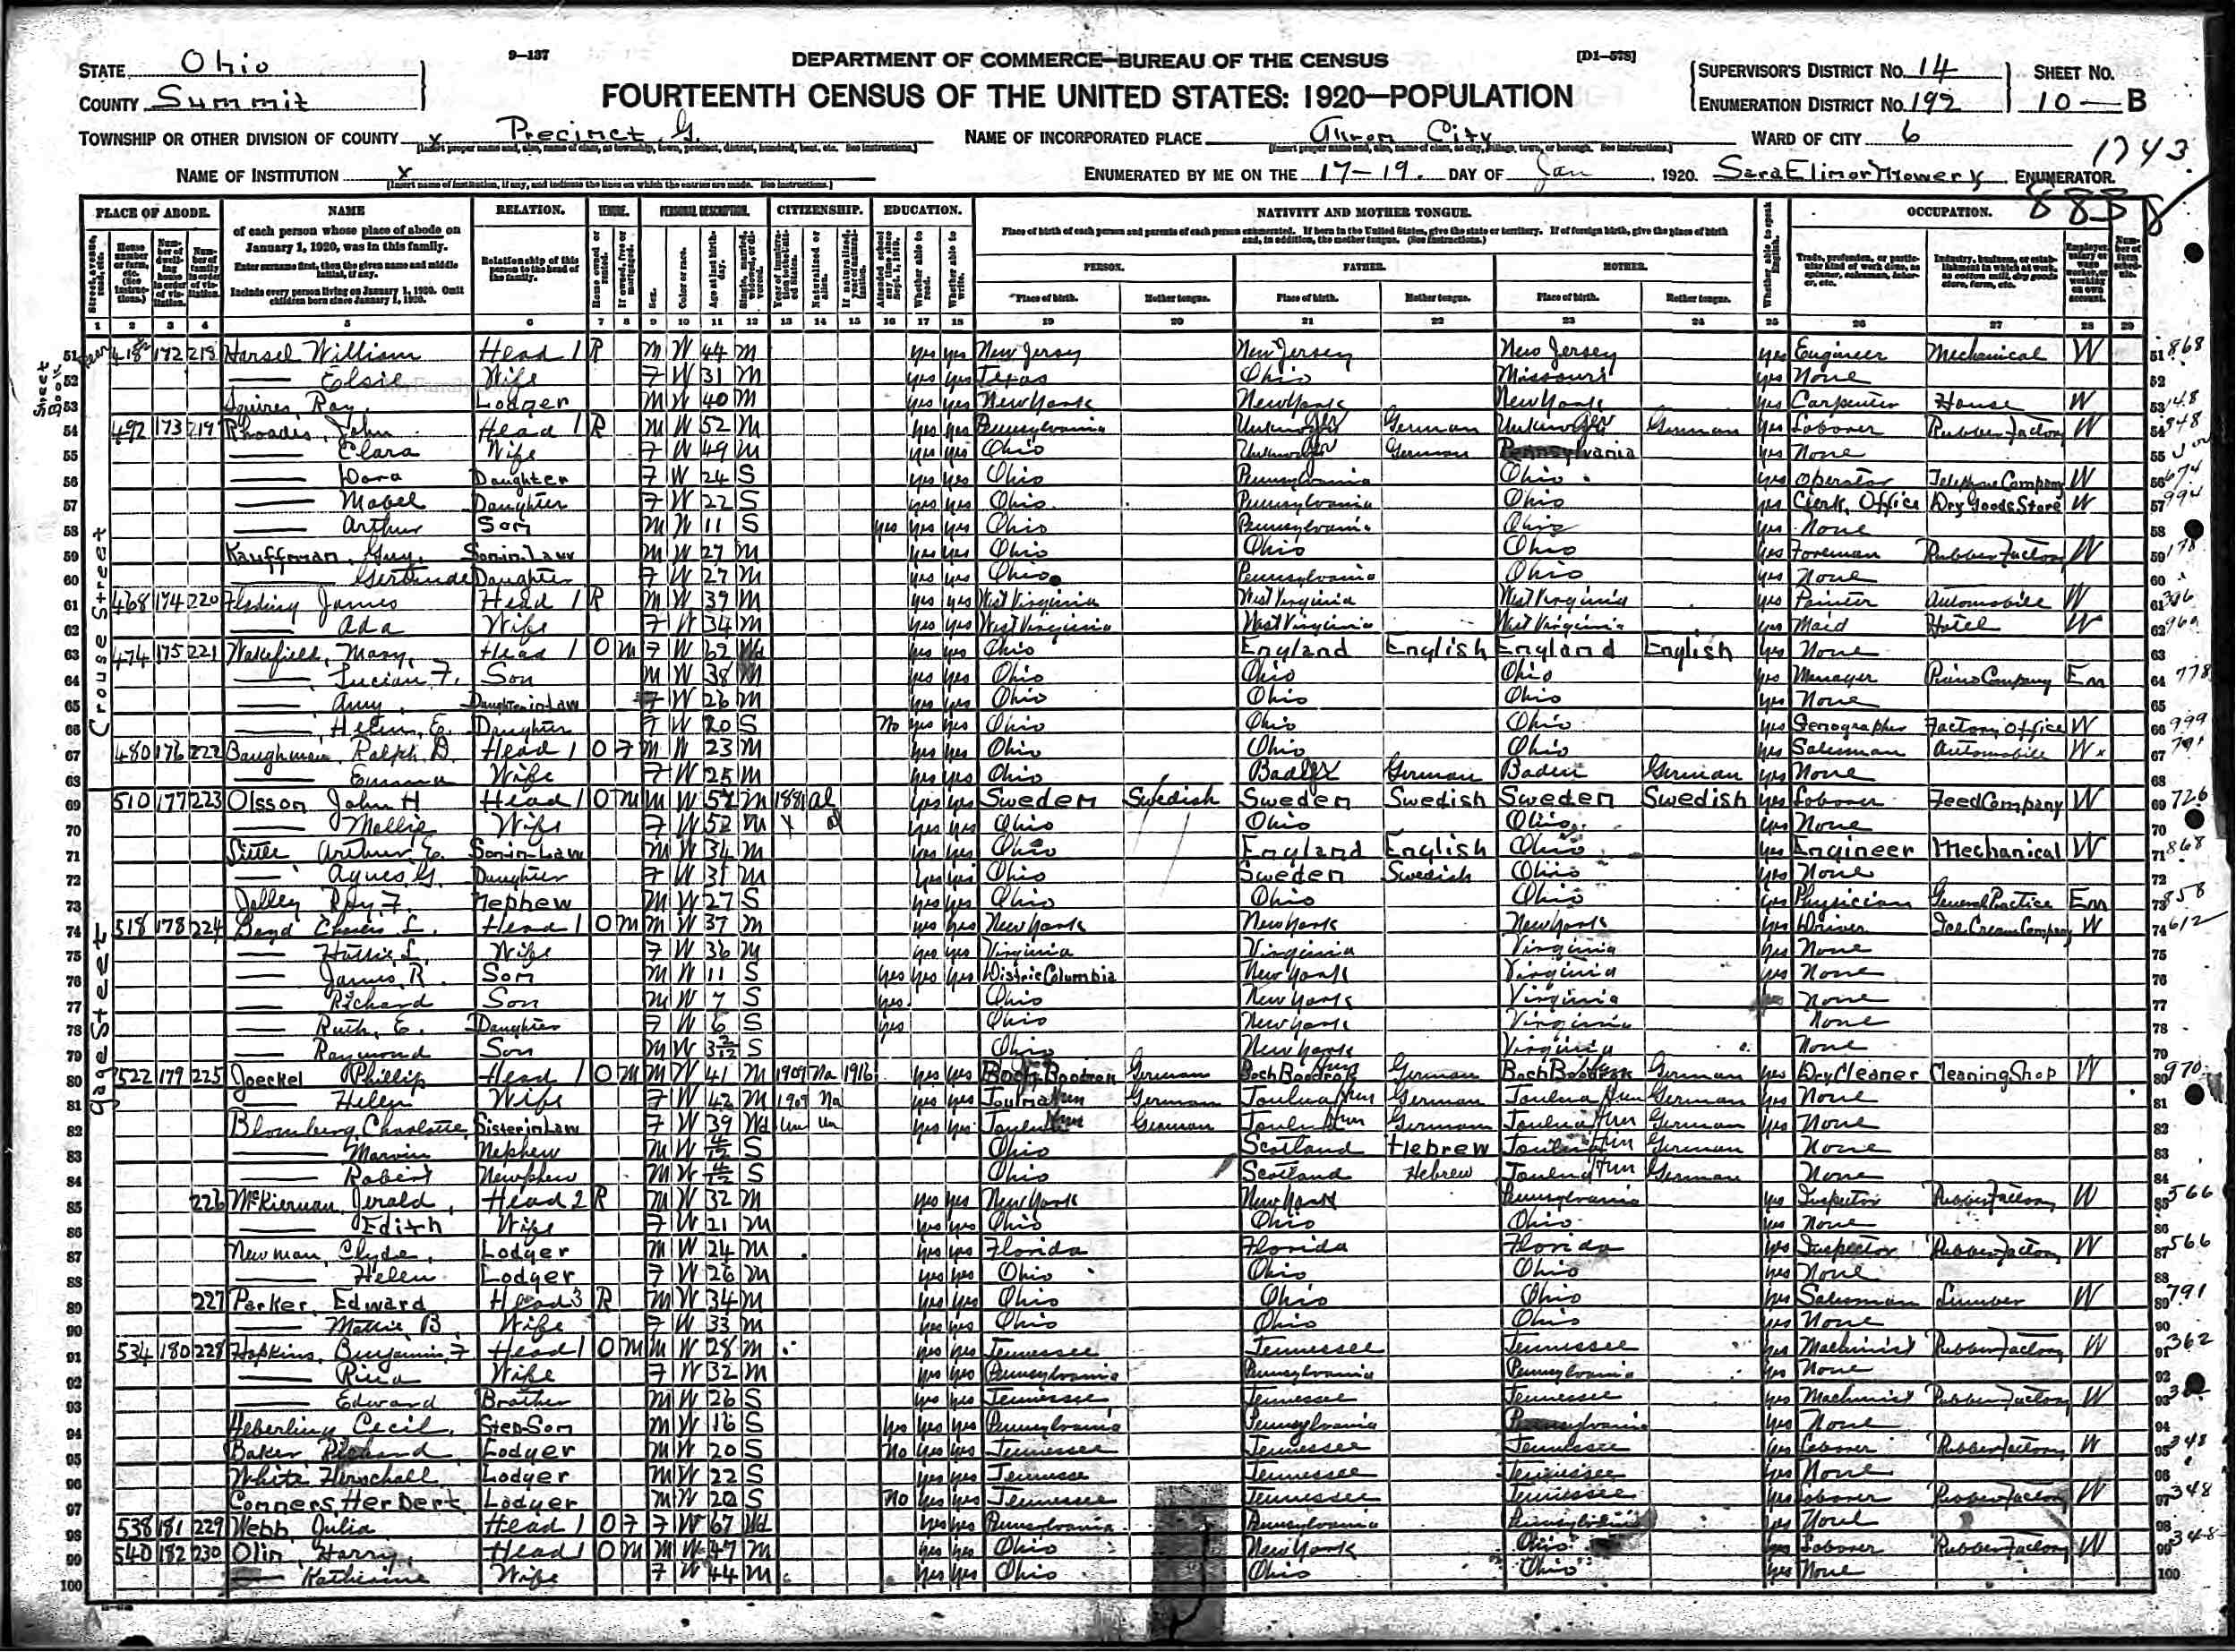 STATE Ohio
COUNTY Summit
9-137
DEPARTMENT OF COMMERCE—BUREAU OF THE CENSUS
[D1-578]
FOURTEENTH CENSUS OF THE UNITED STATES: 1920—POPULATION
SUPERVISOR'S DISTRICT NO. 14 SHEET NO.
ENUMERATION DISTRICT NO. 192 10 — B
TOWNSHIP OR OTHER DIVISION OF COUNTY x Precinct G. NAME OF INCORPORATED PLACE Akron City WARD OF CITY 6
1743
NAME OF INSTITUTION x ENUMERATED BY ME ON THE 17-19. DAY OF Jan, 1920. ENUMERATOR.
PLACE OF ABODE. NAME RELATION. TENURE. PERSONAL DESCRIPTION. CITIZENSHIP. EDUCATION. NATIVITY AND MOTHER TONGUE. OCCUPATION.
of each person whose place of abode on January 1, 1920, was in this family.
Enter surname first, then the given name and middle initial, if any.
Include every person living on January 1, 1920. Omit children born since January 1, 1920.
Relationship of this person to the head of the family.
PERSON. FATHER. MOTHER.
Place of birth. Mother tongue. Place of birth. Mother tongue. Place of birth. Mother tongue.
1 2 3 4 5 6 7 8 9 10 11 12 13 14 15 16 17 18 19 20 21 22 23 24 25 26 27 28 29
Crouse Street
51 418 172 218 Harsel William Head 1 R M W 44 M yes yes New Jersy New Jersey New Jersey yes Engineer Mechanical W 51 868
52 — Elsie Wife F W 31 M yes yes Texas Ohio Missouri yes None 52
53 Squires, Ray. Lodger M W 40 M yes yes New York New York New York yes Carpenter House W 53
54 492 173 219 Rhoades, John Head 1 R M W 52 M yes yes Pennsylvania German German yes Laborer Rubber Factory W 54
55 — Clara Wife F W 49 M yes yes Ohio German Pennsylvania yes None 55
56 — Dora Daughter F W 24 S yes yes Ohio Pennsylvania Ohio yes Operator Telephone Company W 56 674
57 — Mabel Daughter F W 22 S yes yes Ohio Pennsylvania Ohio yes Clerk, Office Dry Goods Store W 57 994
58 — Arthur Son M W 11 S yes yes yes Ohio Pennsylvania Ohio yes None 58
59 Kauffman, Guy. Son in Law M W 27 M yes yes Ohio Ohio Ohio yes Foreman Rubber Factory W 59
60 — Gertrude Daughter F W 27 M yes yes Ohio Pennsylvania Ohio yes None 60
61 468 174 220 James Head 1 R M W 39 M yes yes West Virginia West Virginia West Virginia yes Painter Automobile W 61
62 — Ada Wife F W 34 M yes yes West Virginia West Virginia West Virginia yes Maid Hotel W 62
63 474 175 221 Wakefield, Mary, Head 1 O M F W 62 Wd yes yes Ohio England English England English yes None 63
64 — Lucian F. Son M W 38 M yes yes Ohio Ohio Ohio yes Manager Company Em 64 778
65 — Amy, Daughter in Law F W 26 M yes yes Ohio Ohio Ohio yes None 65
66 — Helen, E. Daughter F W 20 S No yes yes Ohio Ohio Ohio yes Senographer Factory Office W 66 999
67 480 176 222 Baughman, Ralph, D. Head 1 O F M W 23 M yes yes Ohio Ohio Ohio yes Salesman Automobile W 67 791
68 — Emma Wife F W 25 M yes yes Ohio German Baden German yes None 68
Gage Street
69 510 177 223 Olsson John H Head 1 O M M W 57 M 1881 al yes yes Sweden Swedish Sweden Swedish Sweden Swedish yes Laborer Feed Company W 69 726
70 — Mollie Wife F W 52 M x al yes yes Ohio Ohio Ohio yes None 70
71 Arthur, E. Son in Law M W 34 M yes yes Ohio England English Ohio yes Engineer Mechanical W 71 868
72 — Agnes, G. Daughter F W 31 M yes yes Ohio Sweden Swedish Ohio yes None 72
73 Jelley Roy, F. Nephew M W 27 S yes yes Ohio Ohio Ohio yes Physician General Practice Em 73 858
74 518 178 224 Boyd Charles L. Head 1 O M M W 37 M yes yes New York New York New York yes Driver Ice Cream Company W 74 612
75 — Hattie, L. Wife F W 36 M yes yes Virginia Virginia Virginia yes None 75
76 — James, R. Son M W 11 S yes yes yes Distric Columbia New York Virginia yes None 76
77 — Richard Son M W 7 S yes Ohio New York Virginia None 77
78 — Ruth, E. Daughter F W 6 S yes Ohio New York Virginia None 78
79 — Raymond Son M W 3 2/12 S Ohio New York Virginia None 79
80 522 179 225 Joeckel Phillip Head 1 O M M W 41 M 1909 Na 1916 yes yes German German German yes Dry Cleaner Cleaning Shop W 80 970
81 — Helen Wife F W 42 M 1909 Na yes yes German German German yes None 81
82 Blomberg, Charlotte, Sister in Law F W 39 Wd Un Un yes yes German German German yes None 82
83 — Marvin Nephew M W 4/12 S Ohio Scotland Hebrew German None 83
84 — Robert Newphew M W 4/12 S Ohio Scotland Hebrew German None 84
85 226 McKiernan, Jerald, Head 2 R M W 32 M yes yes New York New York Pennsylvania yes Inspector Rubber Factory W 85 566
86 — Edith Wife F W 21 M yes yes Ohio Ohio Ohio yes None 86
87 Newman, Clyde, Lodger M W 24 M yes yes Florida Florida Florida yes Inspector Rubber Factory W 87 566
88 — Helen Lodger F W 26 M yes yes Ohio Ohio Ohio yes None 88
89 227 Parker, Edward Head 3 R M W 34 M yes yes Ohio Ohio Ohio yes Salesman Lumber W 89 791
90 — Mattie, B. Wife F W 33 M yes yes Ohio Ohio Ohio yes None 90
91 534 180 228 Hopkins, Benjamin, F Head 1 O M M W 28 M yes yes Tennessee Tennessee Tennessee yes Machinist Rubber Factory W 91 362
92 — Wife F W 32 M yes yes Pennsylvania Pennsylvania Pennsylvania yes None 92
93 — Edward Brother M W 26 S yes yes Tennessee Tennessee Tennessee yes Machinist Rubber Factory W 93
94 Heberling Cecil, Step-Son M W 16 S yes yes yes Pennsylvania Pennsylvania Pennsylvania yes None 94
95 Baker, Richard Lodger M W 20 S No yes yes Tennessee Tennessee Tennessee yes Laborer Rubber Factory W 95 348
96 White, Herschall Lodger M W 22 S yes yes Tennessee Tennessee Tennessee yes None 96
97 Conners Herbert Lodger M W 20 S No yes yes Tennessee Tennessee Tennessee yes Laborer Rubber Factory W 97 348
98 538 181 229 Webb, Julia Head 1 O F F W 67 Wd yes yes Pennsylvania Pennsylvania Pennsylvania yes None 98
99 540 182 230 Olin, Harry, Head 1 O M M W 47 M yes yes Ohio New York Ohio yes Laborer Rubber Factory W 99 348
100 — Katherine Wife F W 44 M yes yes Ohio Ohio Ohio yes None 100